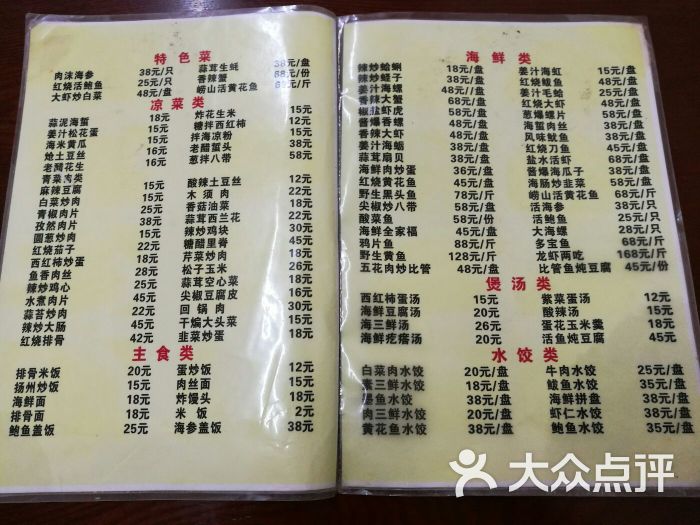 特色菜
肉沫海参 38元/只 蒜茸生蚝 38元/盘
红烧活鲍鱼 25元/只 香辣蟹 88元/份
大虾炒白菜 48元/盘 崂山活黄花鱼 68元/斤
凉菜类
蒜泥海蜇 18元 炸花生米 15元
姜汁松花蛋 16元 糖拌西红柿 12元
海米黄瓜 16元 拌海凉粉 15元
炝土豆丝 老醋蜇头 38元
老醋花生 葱拌八带 58元
青菜类
麻辣豆腐 15元 酸辣土豆丝 15元
白菜炒肉 木须肉 22元
青椒肉片 香菇油菜 18元
孜然肉片 蒜茸西兰花 22元
圆葱炒肉 辣炒鸡块
红烧茄子 22元 糖醋里脊
西红柿炒蛋 芹菜炒肉
鱼香肉丝 松子玉米 26元
辣炒鸡心 蒜茸空心菜 18元
水煮肉片 尖椒豆腐皮 16元
蒜苔炒肉 回锅肉
辣炒大肠 干煸大头菜 15元
红烧排骨 42元 韭菜炒蛋 18元
主食类
排骨米饭 20元 蛋炒饭 12元
扬州炒饭 15元 肉丝面 15元
海鲜面 18元 炸馒头 18元
排骨面 18元 米饭 2元
鲍鱼盖饭 25元 海参盖饭 38元
海鲜类
辣炒蛤蜊 18元/盘 姜汁海虹 15元/盘
辣炒蛏子 38元/盘 红烧鲅鱼 48元/盘
姜汁海螺 48元/盘 姜汁毛蛤 25元/盘
香辣大蟹 68元/盘 红烧大虾 48元/盘
椒盐虾虎 葱爆螺片
酱爆香螺 海蜇肉丝 38元/盘
香辣大虾 风味鱿鱼 38元/盘
姜汁海蛎 红烧刀鱼 45元/盘
蒜茸扇贝 38元/盘 盐水活虾 68元/盘
海鲜肉炒蛋 36元/盘 酱爆海瓜子
红烧黄花鱼 45元/盘 海肠炒韭菜 58元/盘
野生黑头鱼 78元/斤 崂山活黄花鱼 68元/斤
尖椒炒八带 58元/盘 活海参 38元/只
酸菜鱼 58元/份 活鲍鱼 25元/只
海鲜全家福 45元/盘 大海螺 28元/只
鸦片鱼 88元/斤 多宝鱼 68元/斤
野生黄鱼 128元/斤 龙虾两吃 168元/斤
五花肉炒比管 45元/盘 比管鱼炖豆腐 45元/份
煲汤类
西红柿蛋汤 15元 紫菜蛋汤 12元
海鲜豆腐汤 20元 酸辣汤 15元
海三鲜汤 26元 蛋花玉米羹 18元
海鲜疙瘩汤 20元 活鱼炖豆腐
水饺类
白菜肉水饺 20元/盘 牛肉水饺 25元/盘
素三鲜水饺 18元/盘 鲅鱼水饺 35元/盘
墨鱼水饺 38元/盘 海鲜拼盘 38元/盘
肉三鲜水饺 20元/盘 虾仁水饺 38元/盘
黄花鱼水饺 38元/盘 鲍鱼水饺 35元/盘
大众点评